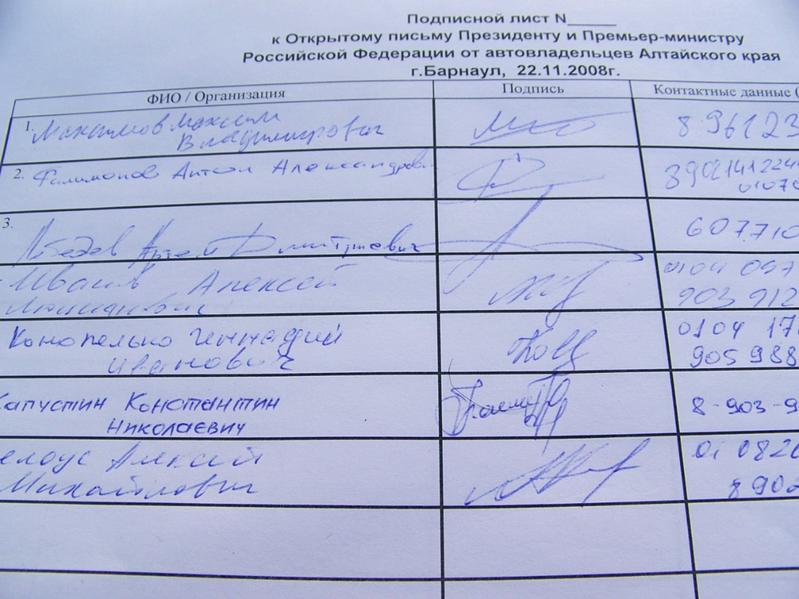 Подписной лист N_____
к Открытому письму Президенту и Премьер-министру
Российской Федерации от автовладельцев Алтайского края
г.Барнаул, 22.11.2008г.
ФИО / Организация Подпись Контактные данные (
1. Максимов Максим 8 96123
Владимирович
2. Филимонов Антон Александрови
3. Лебедев Артем Дмитриевич 607710
Иванв Алексей 0104 097
903 912
Конопелько Геннадий 0104 17
Иванович 905 988
Капустин Константин 8-903-9
Николаевич
елоус Алексей 01 082
Михайлович 8902